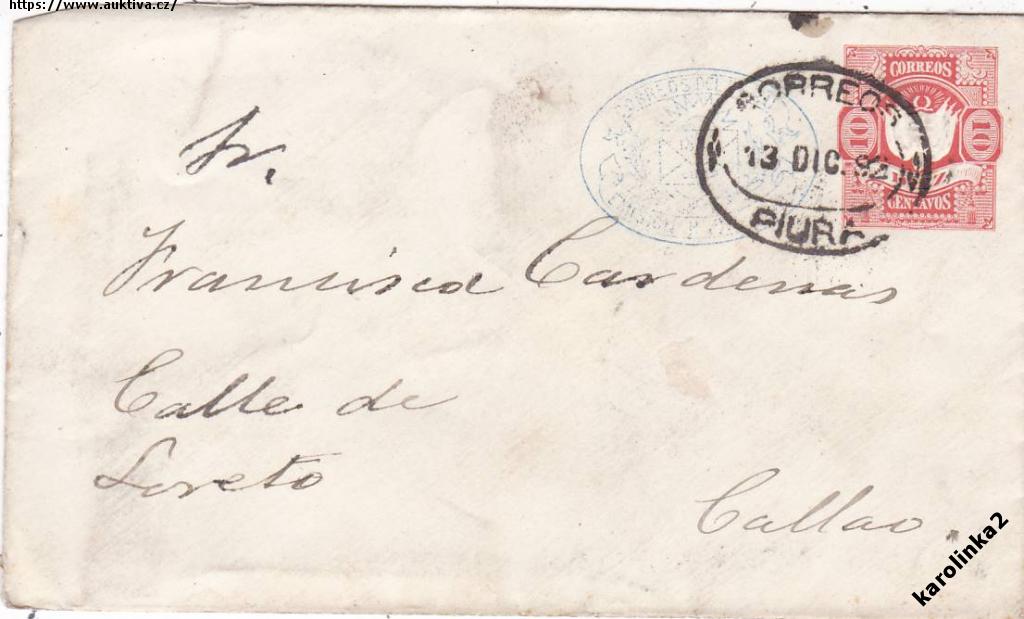 https://www.auktiva.cz/
CORREOS
10 10
CENTAVOS
CORREOS
13 DIC. 92
PIURA
CORREOS
Sr.
Francisco Cardenas
Calle de
Loreto
Callao.
karolinka2